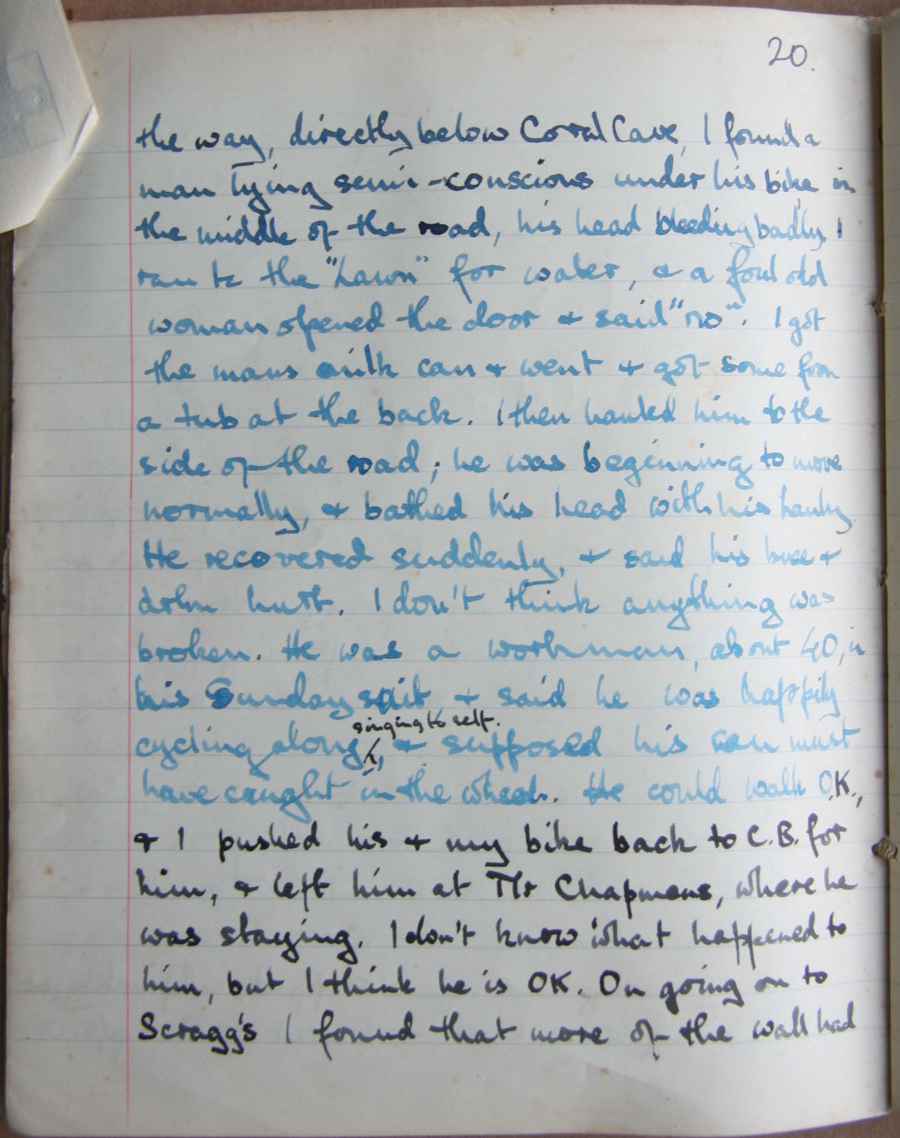 20.
the way, directly below Coral Cave, I found a
man lying semi-conscious under his bike in
the middle of the road, his head bleeding badly. I
ran to the "Lawn" for water, & a foul old
woman opened the door & said "no". I got
the mans milk can & went & got some from
a tub at the back. I then hauled him to the
side of the road; he was beginning to move
normally, & bathed his head with his hanky.
He recovered suddenly, & said his knee &
arm hurt. I don't think anything was
broken. He was a workman, about 40, in
his Sunday suit & said he was happily
singing to self.
cycling along, & supposed his can must
have caught in the wheels. He could walk O.K.,
& I pushed his & my bike back to C.B. for
him, & left him at Mr Chapmans, where he
was staying. I don't know what happened to
him, but I think he is OK. On going on to
Scragg's I found that more of the wall had